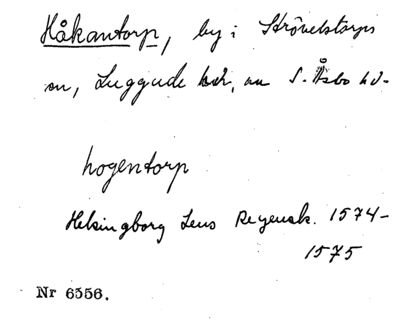 Håkantorp, by i Strövelstorps
sn, Luggude hd, nu S. Åsbo hd.
hogentorp
Helsingborg Lens Regensk. 1574-
1575
Nr 6556.